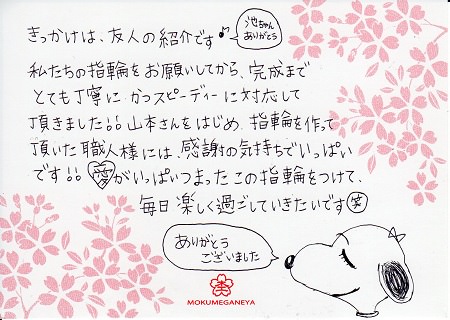 きっかけは、友人の紹介です♪
池ちゃん
ありがとう
私たちの指輪をお願いしてから、完成まで
とても丁寧に かつスピーディーに対応して
頂きました!! 山本さんをはじめ、指輪を作って
頂いた職人様には、感謝の気持ちでいっぱい
です!! 愛がいっぱいつまった この指輪をつけて、
毎日 楽しく過ごしていきたいです 笑
ありがとう
ございました
MOKUMEGANEYA